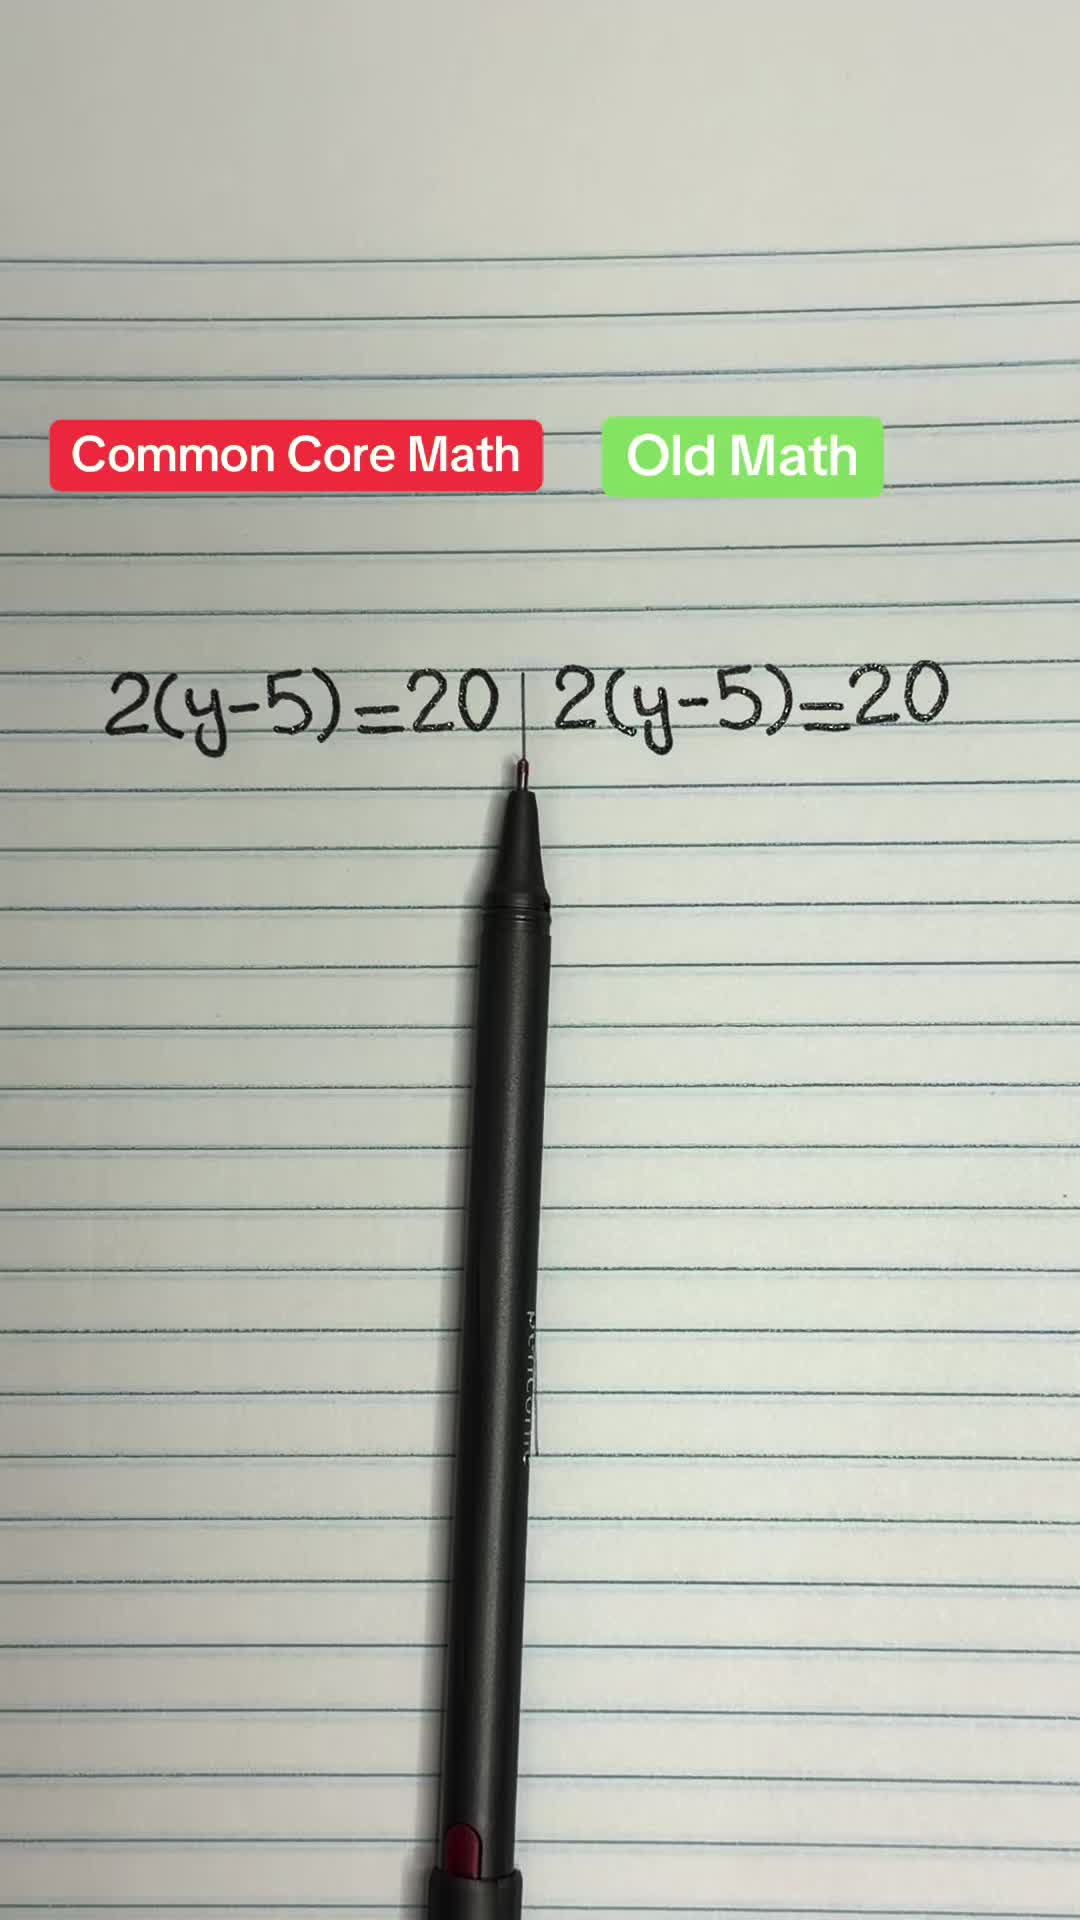 Common Core Math Old Math
2(y-5)=20 2(y-5)=20